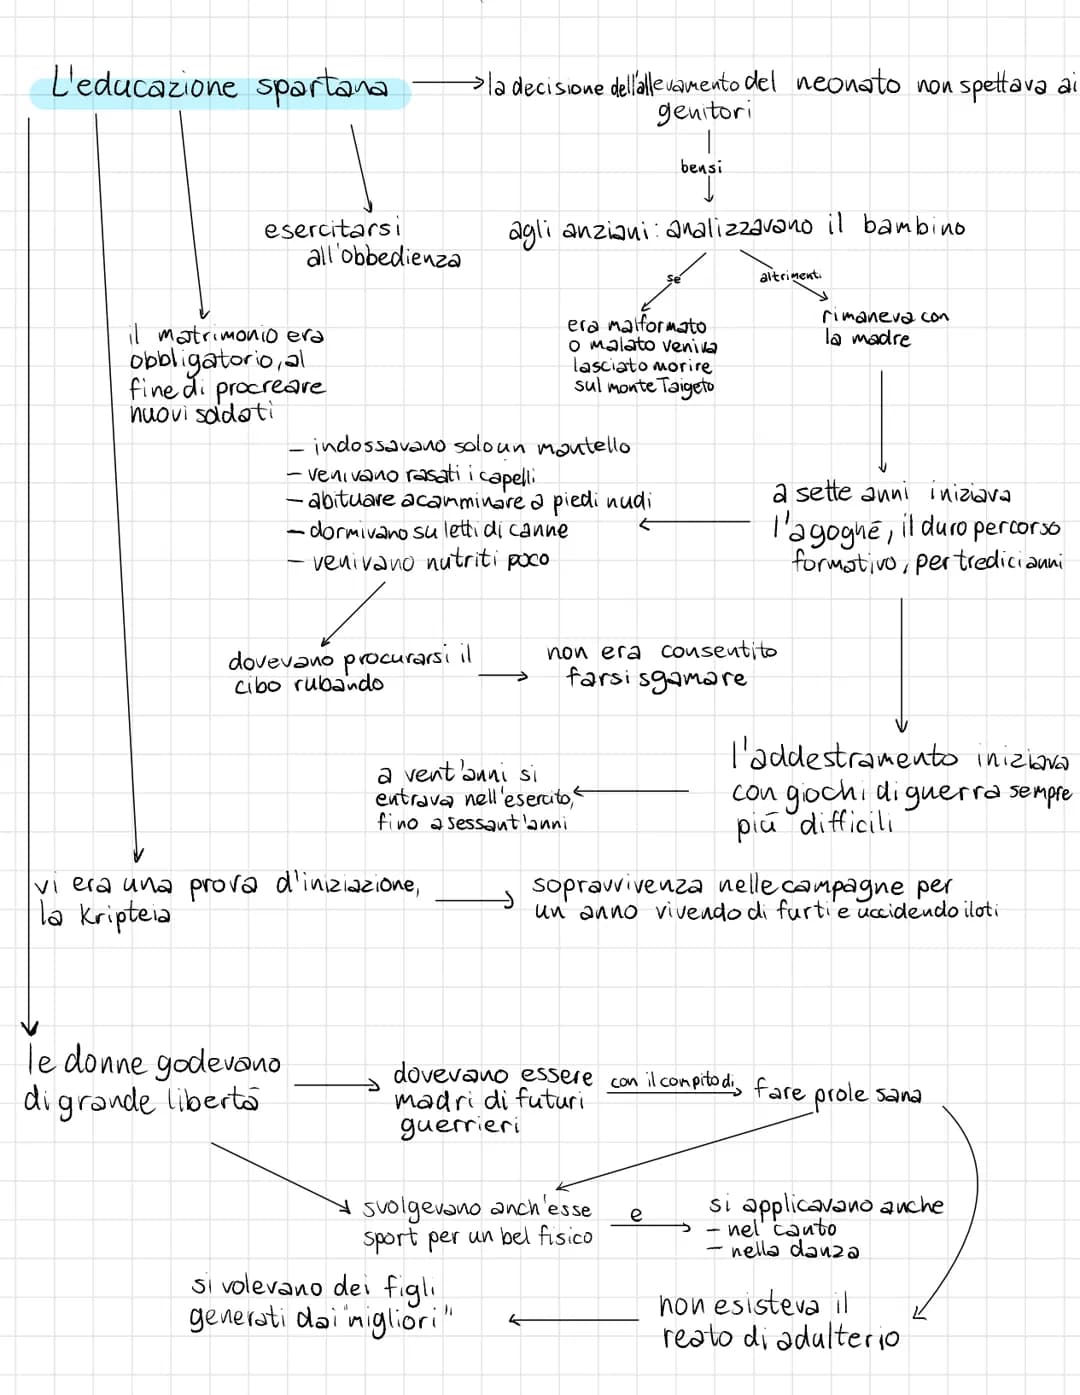 L'educazione spartana
la decisione dell'allevamento del neonato non spettava ai
genitori
bensi
agli anziani: analizzavano il bambino
esercitarsi
all'obbedienza
se
altrimenti
era malformato
o malato veniva
lasciato morire
sul monte Taigeto
rimaneva con
la madre
il matrimonio era
obbligatorio, al
fine di procreare
nuovi soldati
- indossavano solo un mantello
- venivano rasati i capelli
- abituare a camminare a piedi nudi
- dormivano su letti di canne
- venivano nutriti poco
a sette anni iniziava
l'agoghē, il duro percorso
formativo, per tredici anni
dovevano procurarsi il
cibo rubando
non era consentito
farsi sgamare
l'addestramento iniziava
con giochi di guerra sempre
più difficili
a vent'anni si
entrava nell'esercito,
fino a sessant'anni
vi era una prova d'iniziazione,
la Kripteia
sopravvivenza nelle campagne per
un anno vivendo di furti e uccidendo iloti
le donne godevano
di grande libertà
dovevano essere
madri di futuri
guerrieri
con il compito di
fare prole sana
svolgevano anch'esse
sport per un bel fisico
e
si applicavano anche
- nel canto
- nella danza
si volevano dei figli
generati dai "migliori"
non esisteva il
reato di adulterio